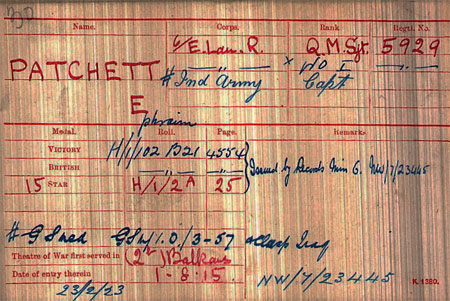 Name. Corps. Rank Regtl. No.
6/E. Lan. R. Q.M. Sjt. 5929
PATCHETT # Ind Army x WO I —„—
Capt
E
phraim
Medal. Roll. Page. Remarks
VICTORY H/1/102 B21 4554
BRITISH —„— —„— Issued by Records Min 6. NW/7/23445
15 STAR H/1/2A 25
# G S Med GSW/I.O./3-57 +Clasp Iraq
Theatre of War first served in (2B) Balkans
Date of entry therein 1-8-15.
23/2/23 NW/7/23445 K. 1380.